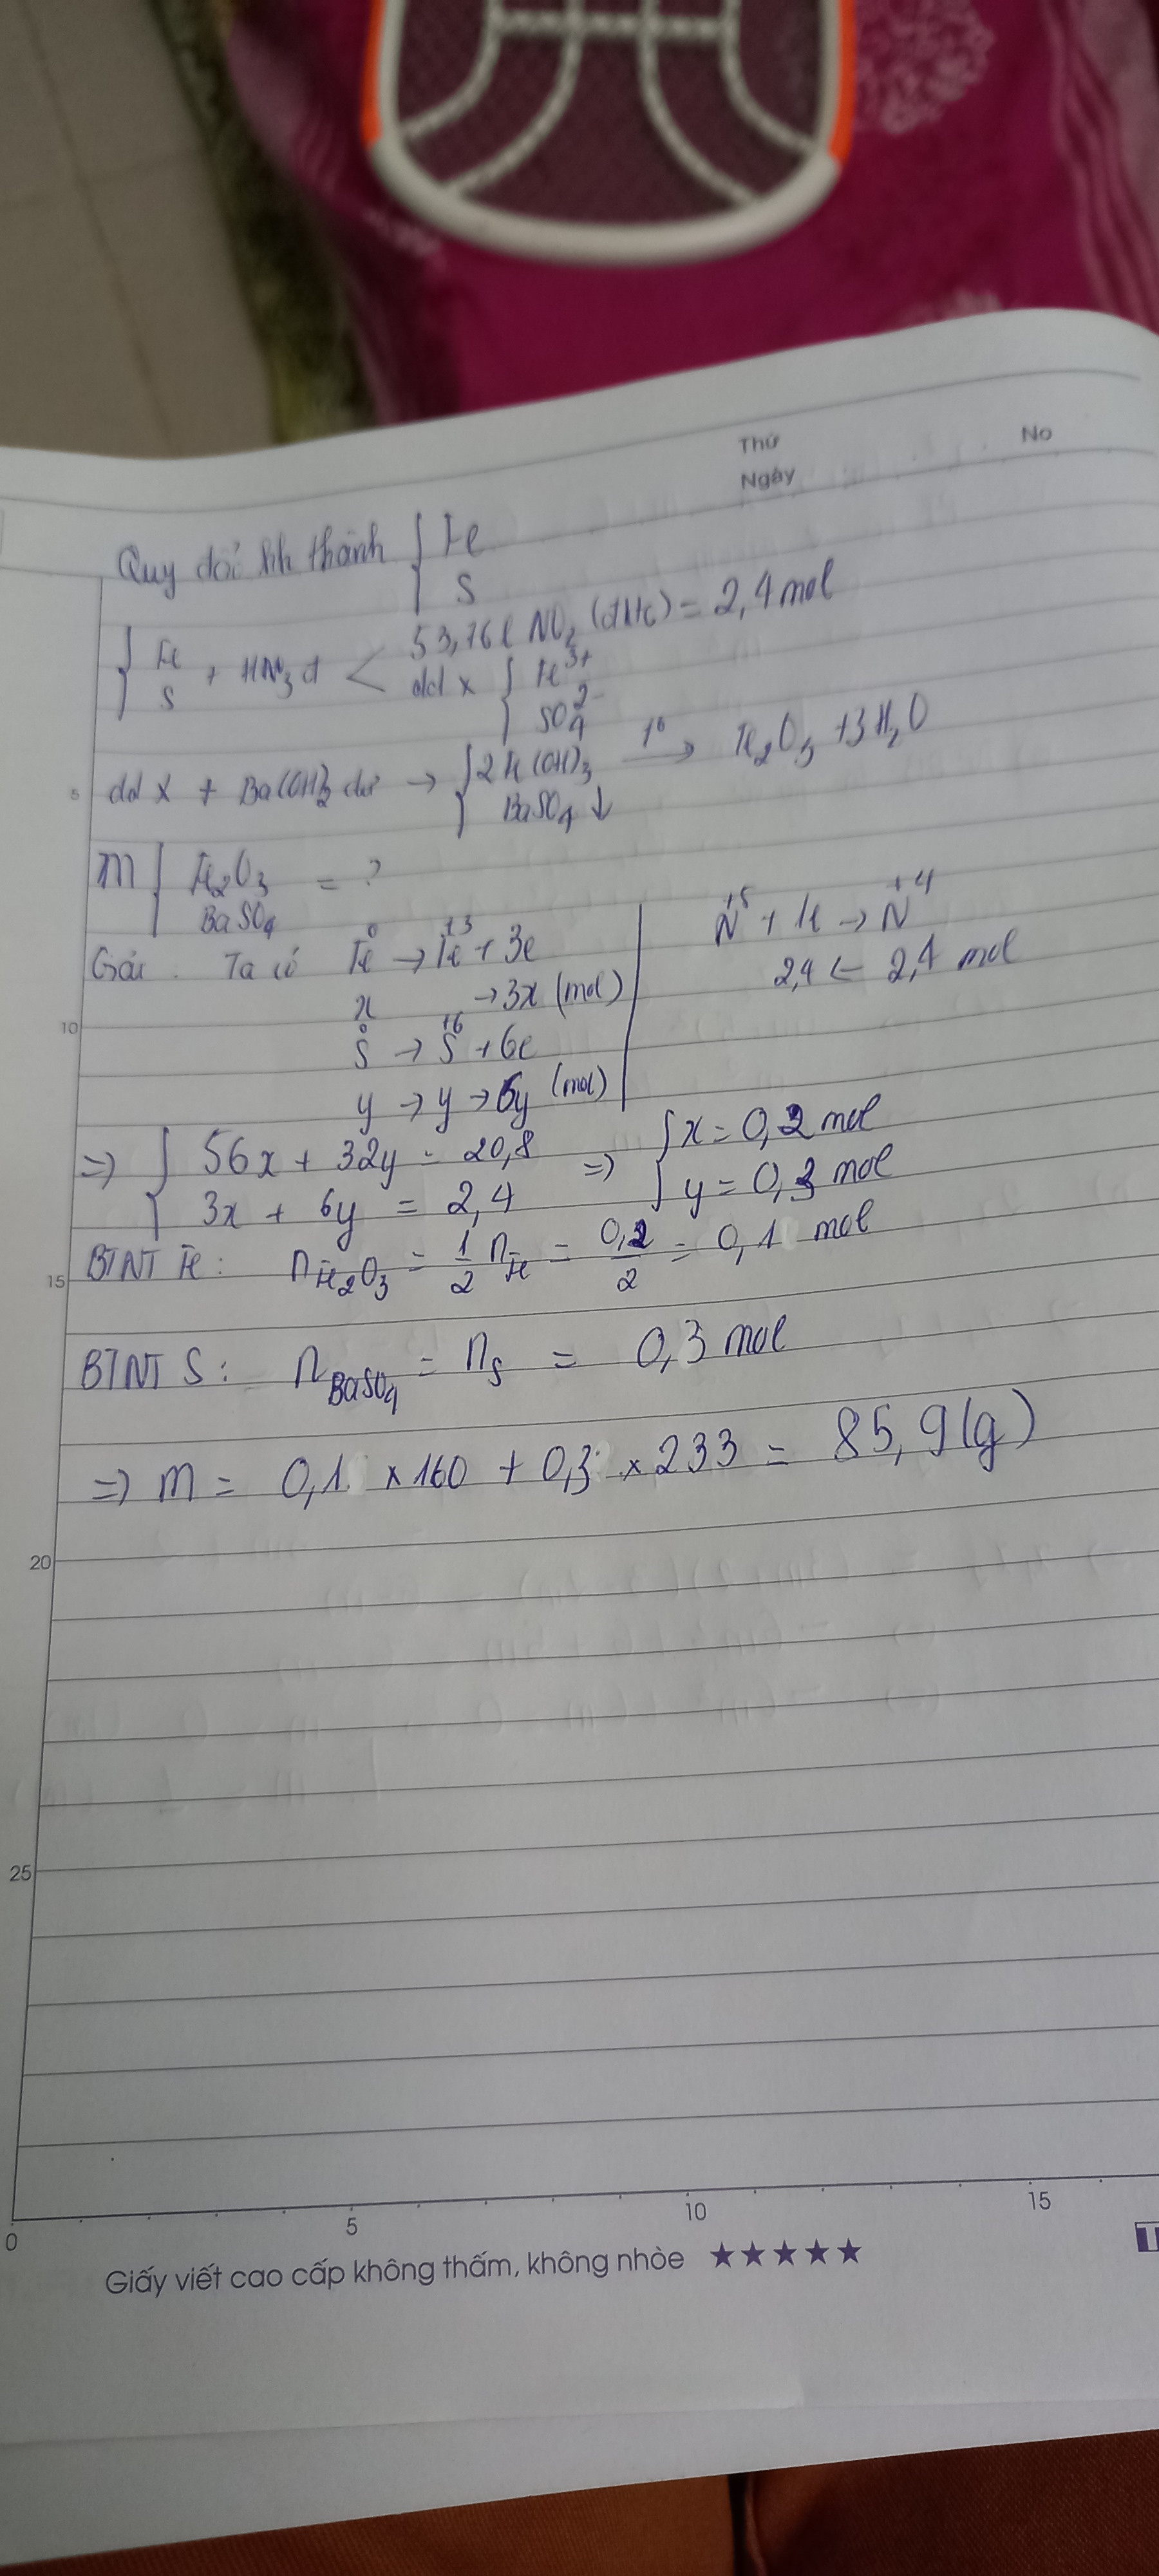 Thứ
No
Ngày
Quy đổi hh thành { Fe
S
{ Fe + HNO3 đ < 53,76l NO2 (đktc) = 2,4 mol
S
dd X { Fe3+
SO4 2-
5 dd X + Ba(OH)2 dư → { 2Fe(OH)3 t° → Fe2O3 + 3H2O
BaSO4 ↓
m { Fe2O3 = ?
BaSO4
Giải. Ta có Fe0 → Fe+3 + 3e | N+5 + 1e → N+4
x → 3x (mol) | 2,4 ← 2,4 mol
10 S0 → S+6 + 6e
y → y → 6y (mol)
=> { 56x + 32y = 20,8 => { x = 0,2 mol
3x + 6y = 2,4 y = 0,3 mol
15 BTNT Fe: nFe2O3 = 1/2 nFe = 0,2/2 = 0,1 mol
BTNT S: nBaSO4 = nS = 0,3 mol
=> m = 0,1 x 160 + 0,3 x 233 = 85,9 (g)
20
25
0 5 10 15
Giấy viết cao cấp không thấm, không nhòe ★★★★★